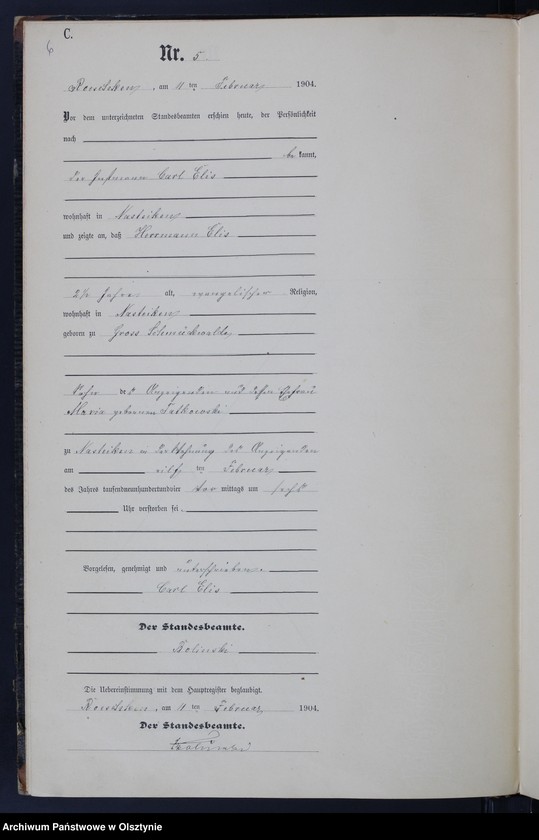 6
C.
Nr. 5
am 11 ten Februar 1904.
Vor dem unterzeichneten Standesbeamten erschien heute, der Persönlichkeit
nach
be kannt,
der Carl Elis
wohnhaft in Nastriken
und zeigte an, daß Herrmann Elis
2½ Jahre alt, evangelischer Religion,
wohnhaft in Nastriken
geboren zu Gross Schmückwalde
Sohn des Anzeigenden und dessen Ehefrau
Maria geborenen
zu Nastriken in der Wohnung des Anzeigenden
am eilf ten Februar
des Jahres tausendneunhundertundvier vor mittags um sechs
Uhr verstorben sei.
Vorgelesen, genehmigt und unterschrieben.
Carl Elis
Der Standesbeamte.
Die Uebereinstimmung mit dem Hauptregister beglaubigt.
am 11 ten Februar 1904.
Der Standesbeamte.
Archiwum Państwowe w Olsztynie